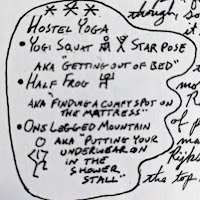 * * *
HOSTEL YOGA
• YOGI SQUAT STAR POSE
AKA "GETTING OUT OF BED"
• HALF FROG
AKA "FINDING A COMFY SPOT ON
THE MATTRESS"
• ONE LEGGED MOUNTAIN
AKA "PUTTING YOUR
UNDERWEAR ON
IN THE
SHOWER
STALL"
though,
of
the top